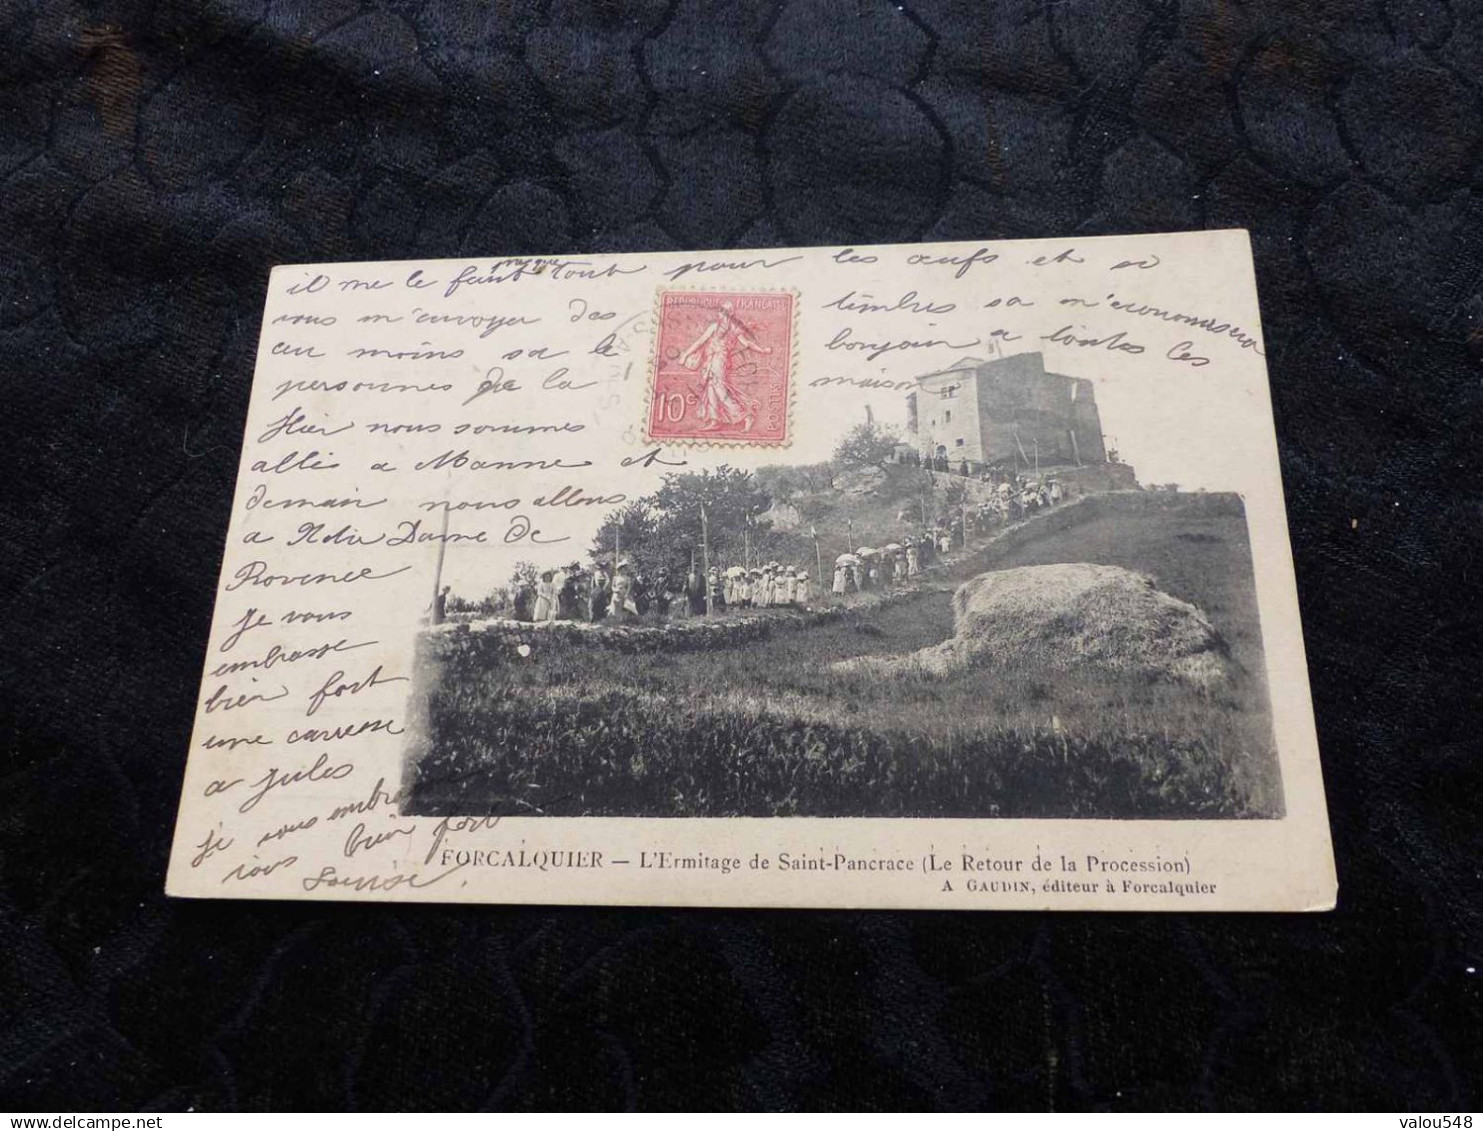 il me le faut presque tout pour les œufs et si
vous m'envoyer des timbres sa m'economisera
au moins sa le bonjour a toutes les
personnes de la maison
Hier nous sommes
allés a Manne et
demain nous allons
a Notre Dame de
Provence
je vous
embrasse
bien fort
une caresse
a Jules
je vous embrasse
tous bien fort
Louise
REPUBLIQUE FRANÇAISE
10c
POSTES
FORCALQUIER — L'Ermitage de Saint-Pancrace (Le Retour de la Procession)
A GAUDIN, éditeur à Forcalquier
valou548